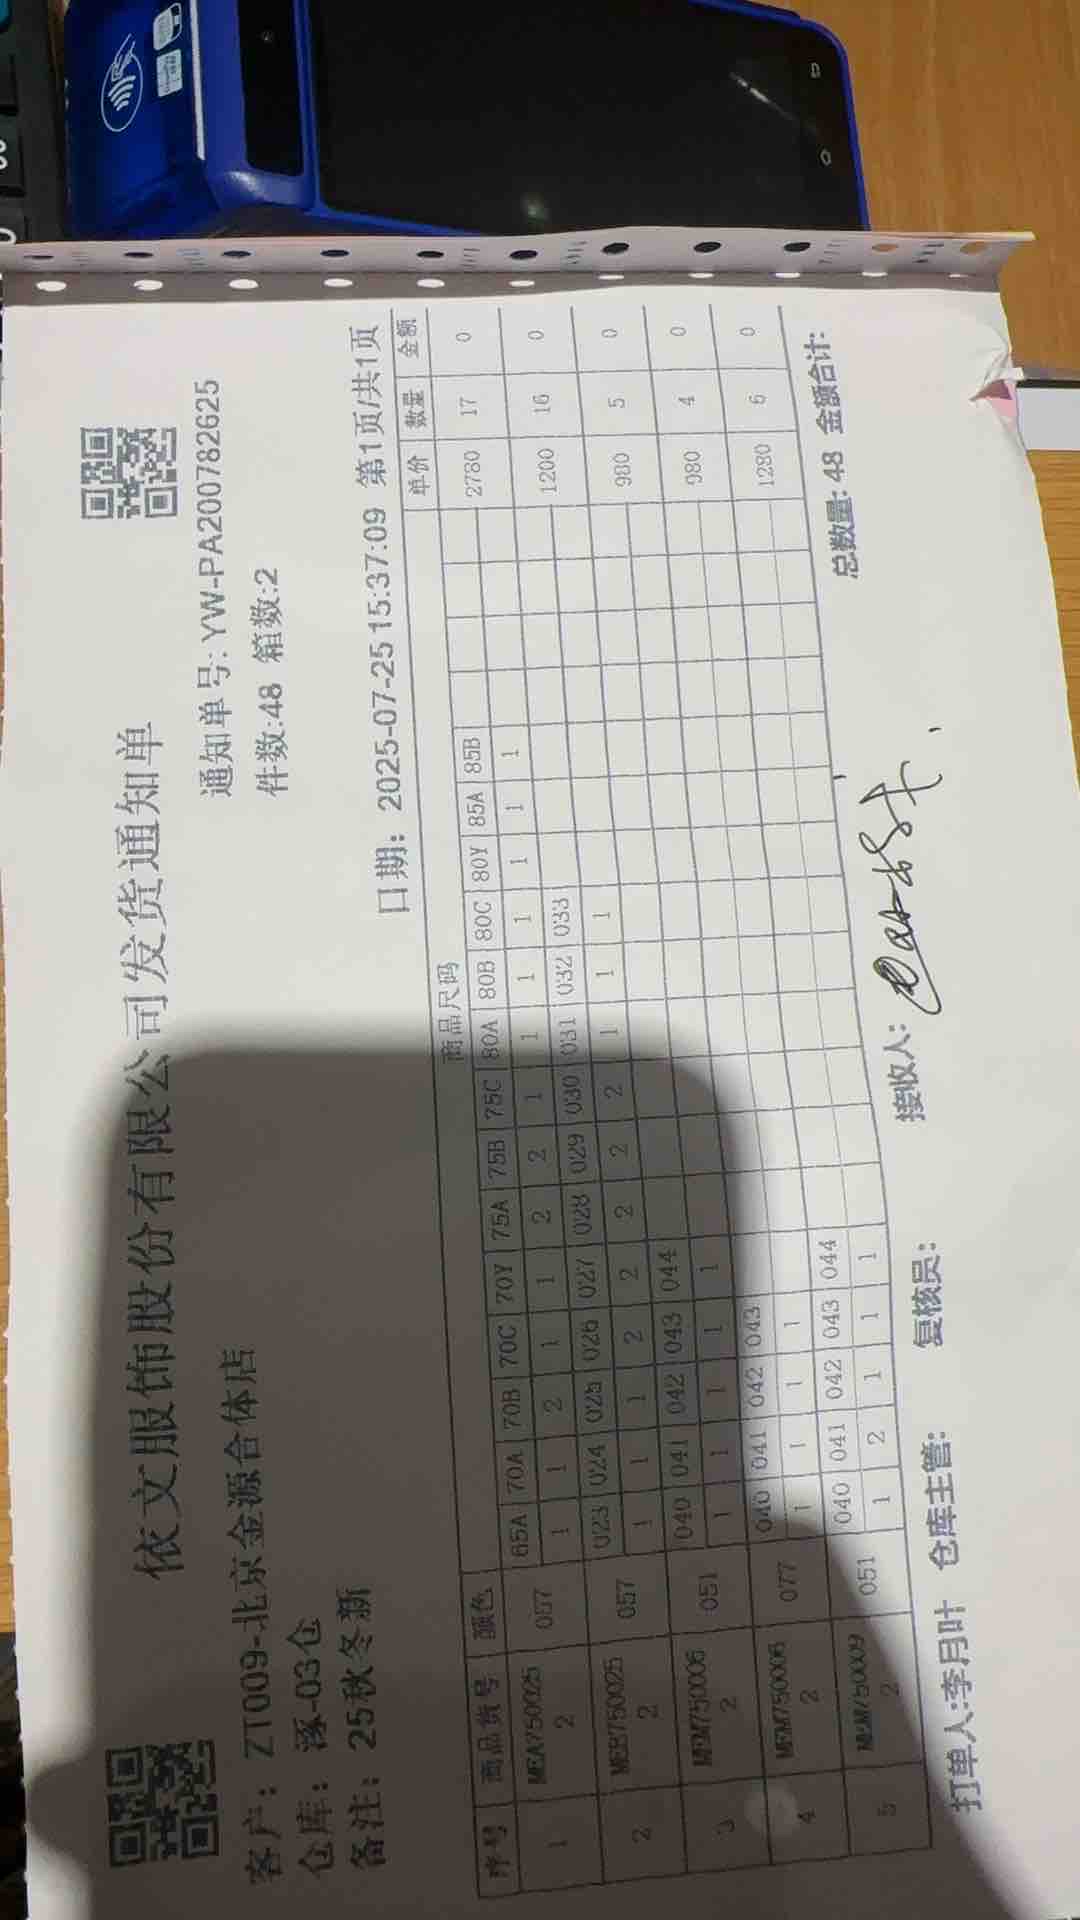 依文服饰股份有限公司发货通知单
客户: ZT009-北京金源合体店 通知单号: YW-PA200782625
仓库: 涿-03仓 件数:48 箱数:2
备注: 25秋冬新 日期: 2025-07-25 15:37:09 第1页/共1页
序号 商品货号 颜色 商品尺码 单价 数量 金额
65A 70A 70B 70C 70Y 75A 75B 75C 80A 80B 80C 80Y 85A 85B
1 MEA7500252 057 1 1 2 1 1 2 2 1 1 1 1 1 1 1 2780 17 0
023 024 025 026 027 028 029 030 031 032 033
2 MEB7500252 057 1 1 1 2 2 2 2 2 1 1 1 1200 16 0
040 041 042 043 044
3 MEM7500062 051 1 1 1 1 1 980 5 0
040 041 042 043
4 MEM7500062 077 1 1 1 1 980 4 0
040 041 042 043 044
5 MEM7500092 051 1 2 1 1 1 1280 6 0
总数量: 48 金额合计:
打单人:李月叶 仓库主管: 复核员: 接收人: